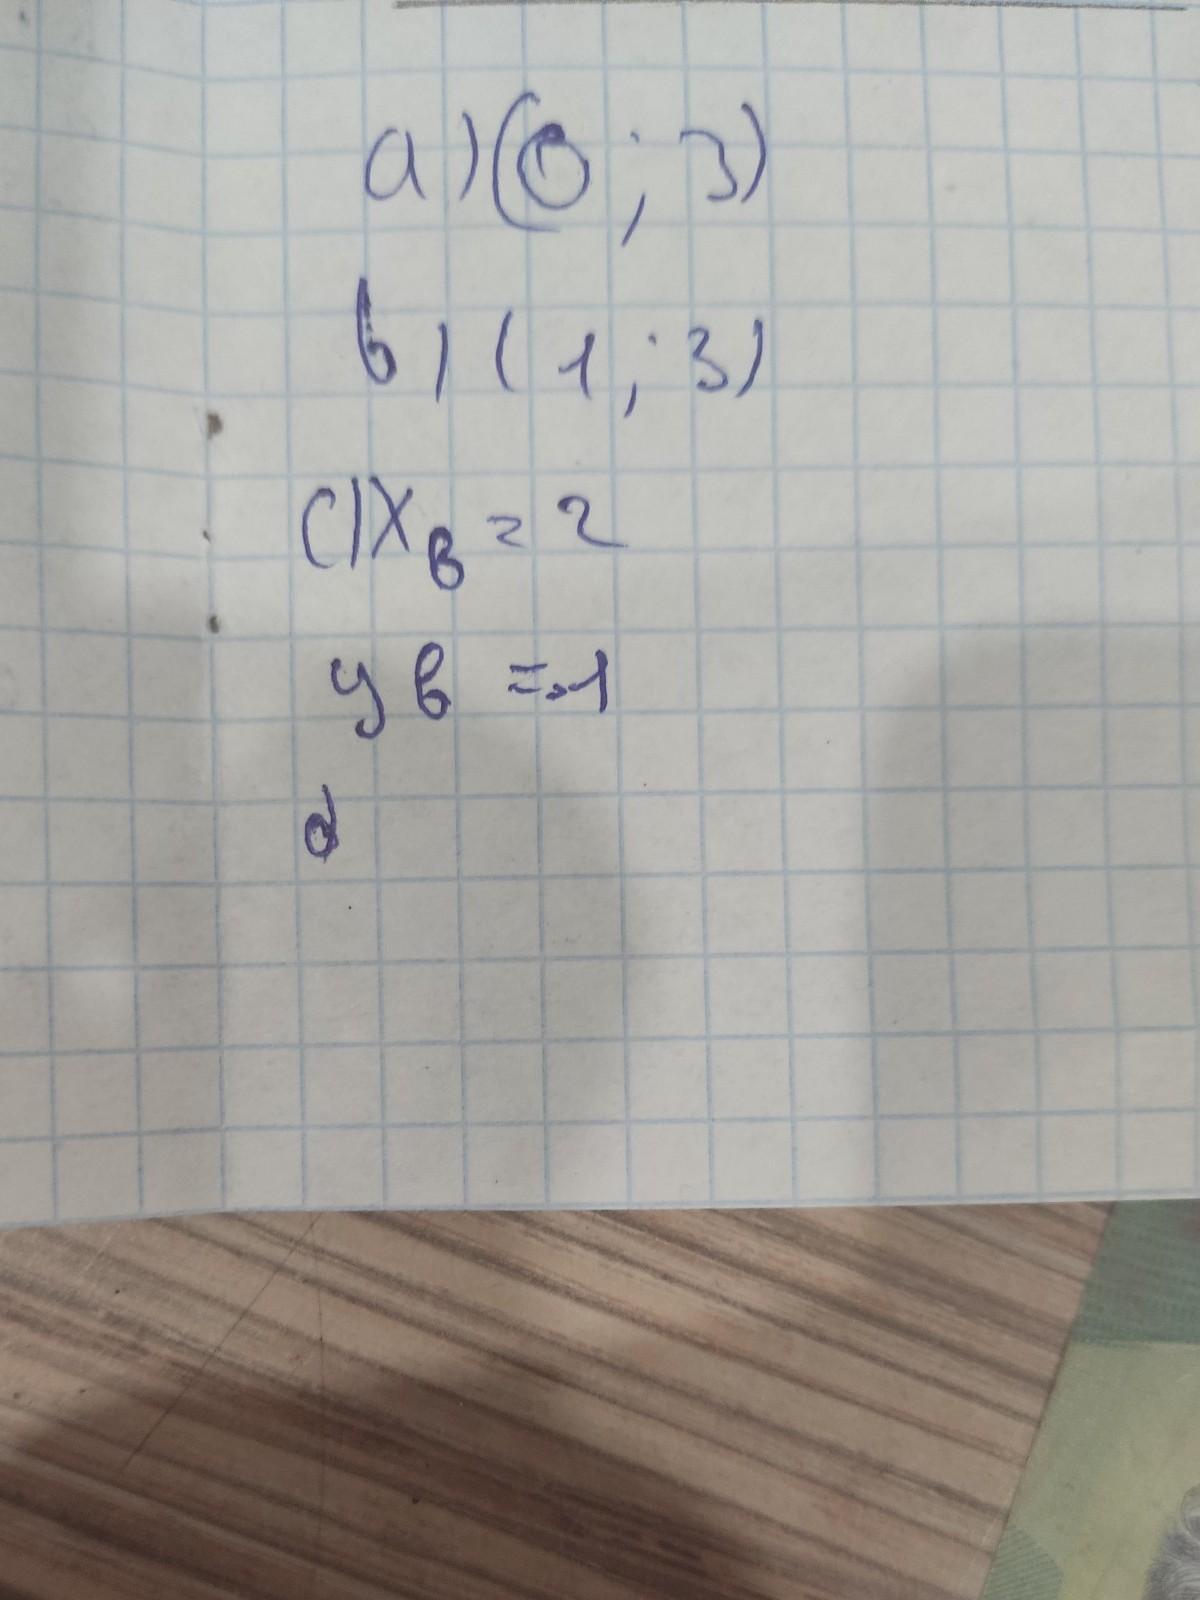 a) (0; 3)
b) (1; 3)
c) x_B = 2
y_B = -1
d